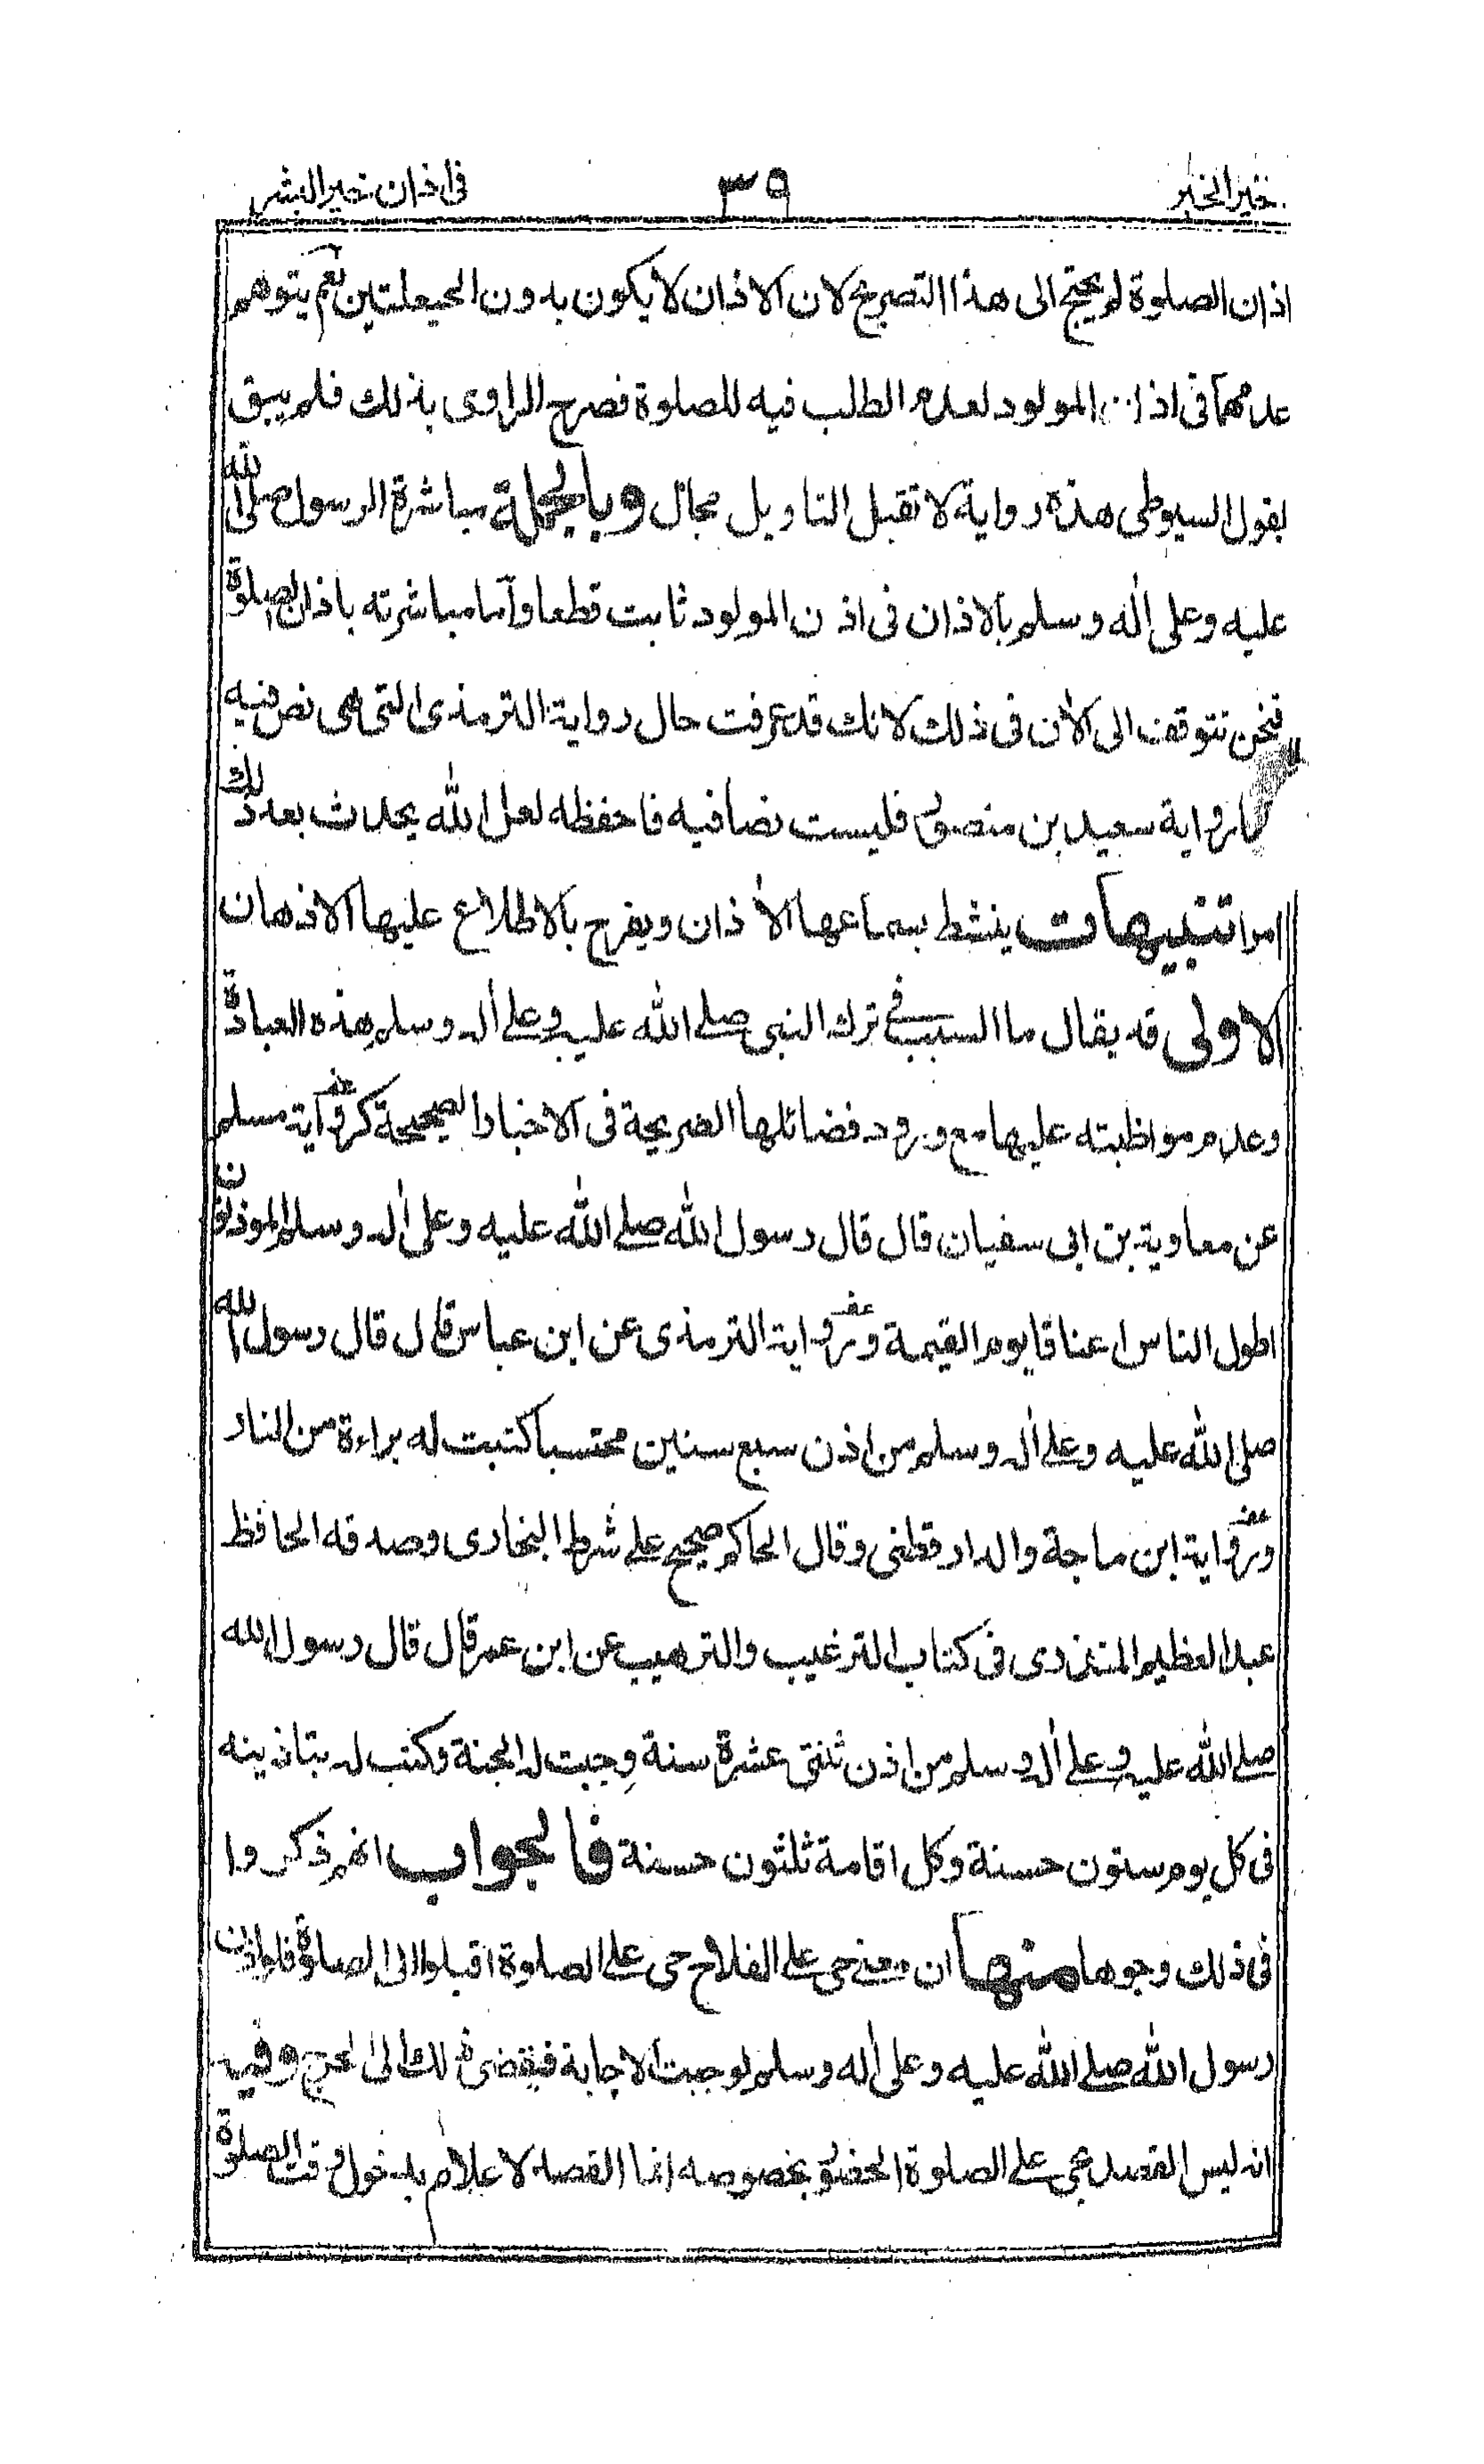 خير الخبر
٣٩
فى اذان خير البشر
اذان الصلوة لم يحتج الى هذا التصريح لان الاذان لا يكون بدون الحيعلتين نعم يتوهم
عدمهما فى اذان المولود لعدم الطلب فيه للصلوة فصرح الراوى بذلك فلم يبق
لقول السيوطى هذه رواية لا تقبل التاويل مجال وبالجملة مباشرة الرسول صلى الله
عليه وعلى اله وسلم بالاذان فى اذن المولود ثابت قطعا واما مباشرته باذان الصلوة
فنحن نتوقف الى الأن فى ذلك لانك قد عرفت حال رواية الترمذى التى هى نص فيه
رواية سعيد بن منصور فليست نصا فيه فاحفظه لعل الله يحدث بعد ذلك
امرا تنبيهات ينشط بسماعها الأذان ويفرح بالاطلاع عليها الاذهان
الاولى قد يقال ما السبب فى ترك النبى صلے الله عليه وعلے اله وسلم هذه العبادة
وعدم مواظبته عليها مع ورود فضائلها الصريحة فى الاخبار الصحيحة كرواية مسلم
عن معاوية بن ابى سفيان قال قال رسول الله صلے الله عليه وعلى اله وسلم الموذنون
اطول الناس اعناقا يوم القيمة وفى رواية الترمذى عن ابن عباس قال قال رسول الله
صلى الله عليه وعلے اله وسلم من اذن سبع سنين محتسبا كتبت له براءة من النار
وفى رواية ابن ماجة والدارقطنى وقال الحاكم صحيح علے شرط البخارى وصدقه الحافظ
عبد العظيم المنذرى فى كتاب الترغيب والترهيب عن ابن عمر قال قال رسول الله
صلے الله عليه وعلے اله وسلم من اذن ثنتى عشرة سنة وجبت له الجنة وكتب له بتاذينه
فى كل يوم ستون حسنة وكل اقامة ثلثون حسنة فالجواب انهم ذكروا
فى ذلك وجوها منها ان معنى حى على الفلاح حى علے الصلوة اقبلوا الى الصلوة فلو اذن
رسول الله صلے الله عليه وعلى اله وسلم لوجبت الاجابة فيفضى ذلك الى الحرج وفيه
انه ليس القصد بحى علے الصلوة الحضور بخصوصه انما القصد لاعلام بدخول وقت الصلوة